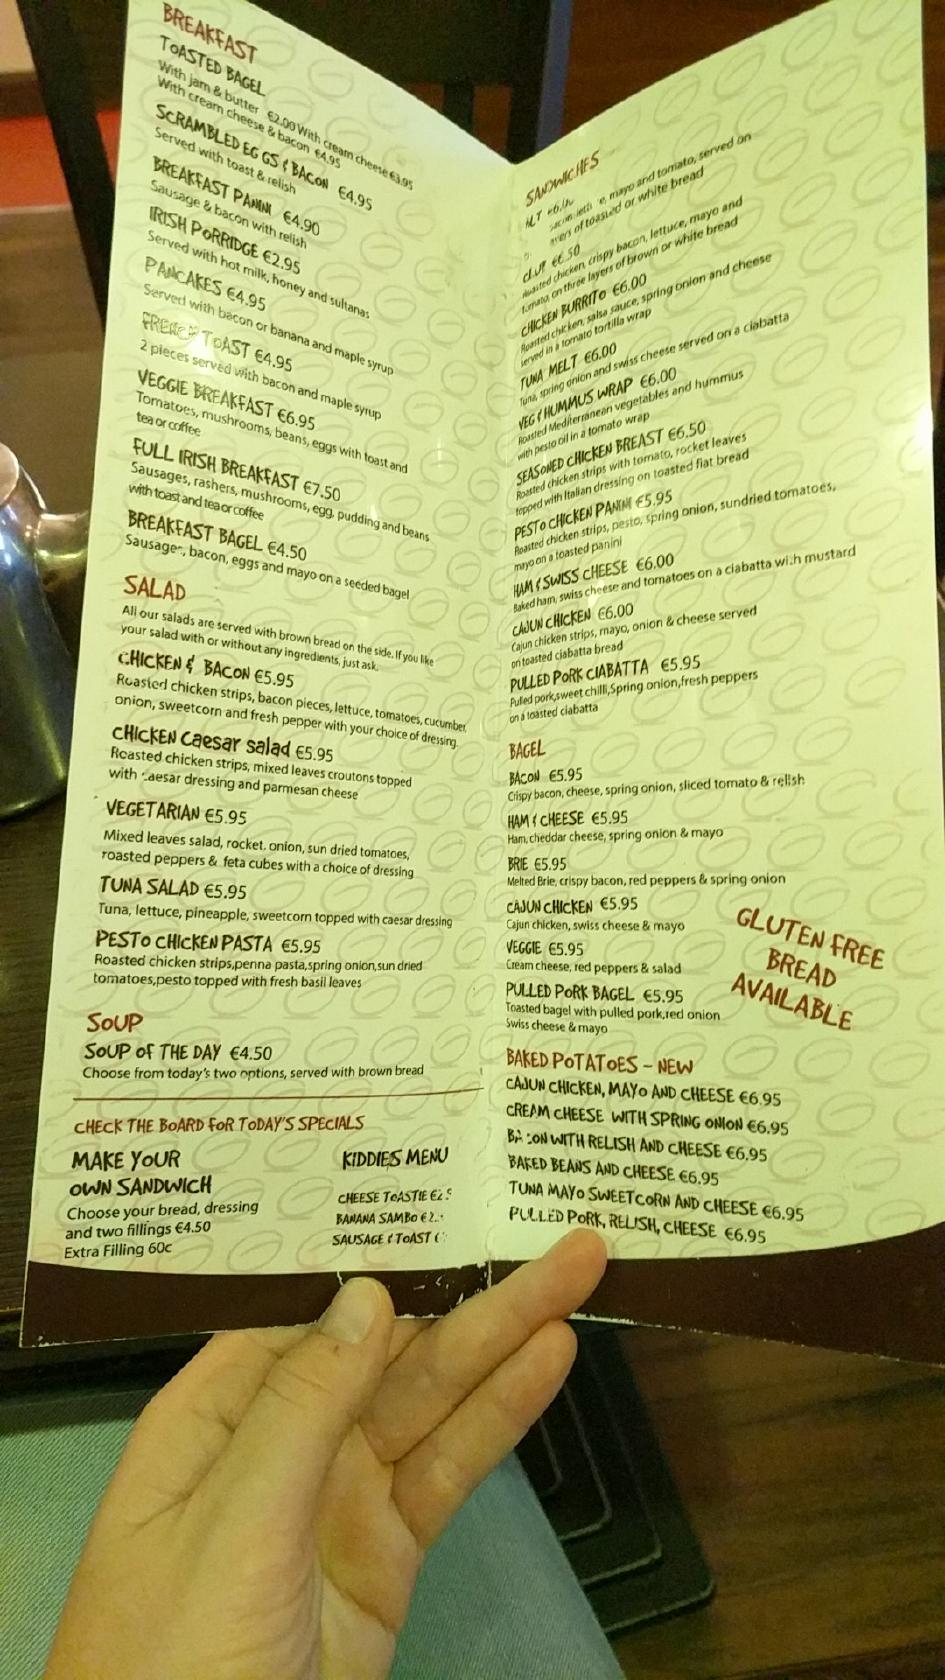 BREAKFAST
TOASTED BAGEL
With jam & butter €2.00 With cream cheese €3.95
With cream cheese & bacon €4.95
SCRAMBLED EGGS & BACON €4.95
Served with toast & relish
BREAKFAST PANINI €4.90
Sausage & bacon with relish
IRISH PORRIDGE €2.95
Served with hot milk, honey and sultanas
PANCAKES €4.95
Served with bacon or banana and maple syrup
FRENCH TOAST €4.95
2 pieces served with bacon and maple syrup
VEGGIE BREAKFAST €6.95
Tomatoes, mushrooms, beans, eggs with toast and
tea or coffee
FULL IRISH BREAKFAST €7.50
Sausages, rashers, mushrooms, egg, pudding and beans
with toast and tea or coffee
BREAKFAST BAGEL €4.50
Sausages, bacon, eggs and mayo on a seeded bagel
SALAD
All our salads are served with brown bread on the side. If you like
your salad with or without any ingredients, just ask.
CHICKEN & BACON €5.95
Roasted chicken strips, bacon pieces, lettuce, tomatoes, cucumber,
onion, sweetcorn and fresh pepper with your choice of dressing.
CHICKEN Caesar salad €5.95
Roasted chicken strips, mixed leaves croutons topped
with caesar dressing and parmesan cheese
VEGETARIAN €5.95
Mixed leaves salad, rocket, onion, sun dried tomatoes,
roasted peppers & feta cubes with a choice of dressing
TUNA SALAD €5.95
Tuna, lettuce, pineapple, sweetcorn topped with caesar dressing
PESTO CHICKEN PASTA €5.95
Roasted chicken strips,penna pasta,spring onion,sun dried
tomatoes,pesto topped with fresh basil leaves
SOUP
SOUP OF THE DAY €4.50
Choose from today's two options, served with brown bread
CHECK THE BOARD FOR TODAY'S SPECIALS
MAKE YOUR
OWN SANDWICH
Choose your bread, dressing
and two fillings €4.50
Extra Filling 60c
KIDDIES MENU
CHEESE TOASTIE
BANANA SAMBO
SAUSAGE & TOAST
SANDWICHES
mayo and tomato, served on
of toasted or white bread
€6.50
Roasted chicken, crispy bacon, lettuce, mayo and
tomato, on three layers of brown or white bread
CHICKEN BURRITO €6.00
Roasted chicken, salsa sauce, spring onion and cheese
served in a tomato tortilla wrap
TUNA MELT €6.00
Tuna, spring onion and swiss cheese served on a ciabatta
VEG & HUMMUS WRAP €6.00
Roasted Mediterranean vegetables and hummus
with pesto oil in a tomato wrap
SEASONED CHICKEN BREAST €6.50
Roasted chicken strips with tomato, rocket leaves
topped with Italian dressing on toasted flat bread
PESTO CHICKEN PANINI €5.95
Roasted chicken strips, pesto, spring onion, sundried tomatoes,
mayo on a toasted panini
HAM & SWISS CHEESE €6.00
Baked ham, swiss cheese and tomatoes on a ciabatta with mustard
CAJUN CHICKEN €6.00
Cajun chicken strips, mayo, onion & cheese served
on toasted ciabatta bread
PULLED PORK CIABATTA €5.95
Pulled pork,sweet chilli,Spring onion,fresh peppers
on a toasted ciabatta
BAGEL
BACON €5.95
Crispy bacon, cheese, spring onion, sliced tomato & relish
HAM & CHEESE €5.95
Ham, cheddar cheese, spring onion & mayo
BRIE €5.95
Melted Brie, crispy bacon, red peppers & spring onion
CAJUN CHICKEN €5.95
Cajun chicken, swiss cheese & mayo
VEGGIE €5.95
Cream cheese, red peppers & salad
PULLED PORK BAGEL €5.95
Toasted bagel with pulled pork,red onion
Swiss cheese & mayo
GLUTEN FREE
BREAD
AVAILABLE
BAKED POTATOES - NEW
CAJUN CHICKEN, MAYO AND CHEESE €6.95
CREAM CHEESE WITH SPRING ONION €6.95
BACON WITH RELISH AND CHEESE €6.95
BAKED BEANS AND CHEESE €6.95
TUNA MAYO SWEETCORN AND CHEESE €6.95
PULLED PORK, RELISH, CHEESE €6.95